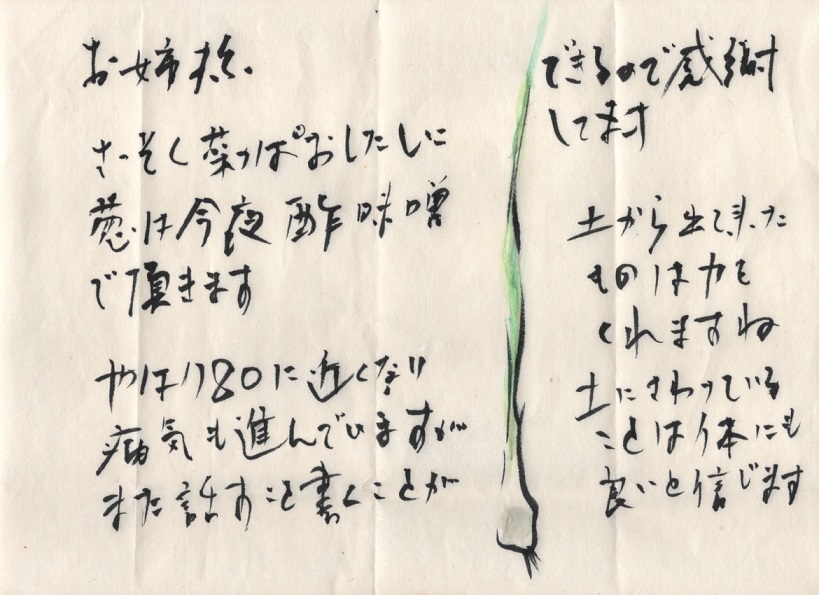 お姉様.
さっそく菜っぱおしたしに
葱は今夜酢味噌
で頂きます
やはり80に近くなり
病気も進んでいますが
まだ話すこと書くことが
できるので感謝
してます
土から出て来た
ものは力を
くれますね
土にさわっている
ことは体にも
良いと信じます